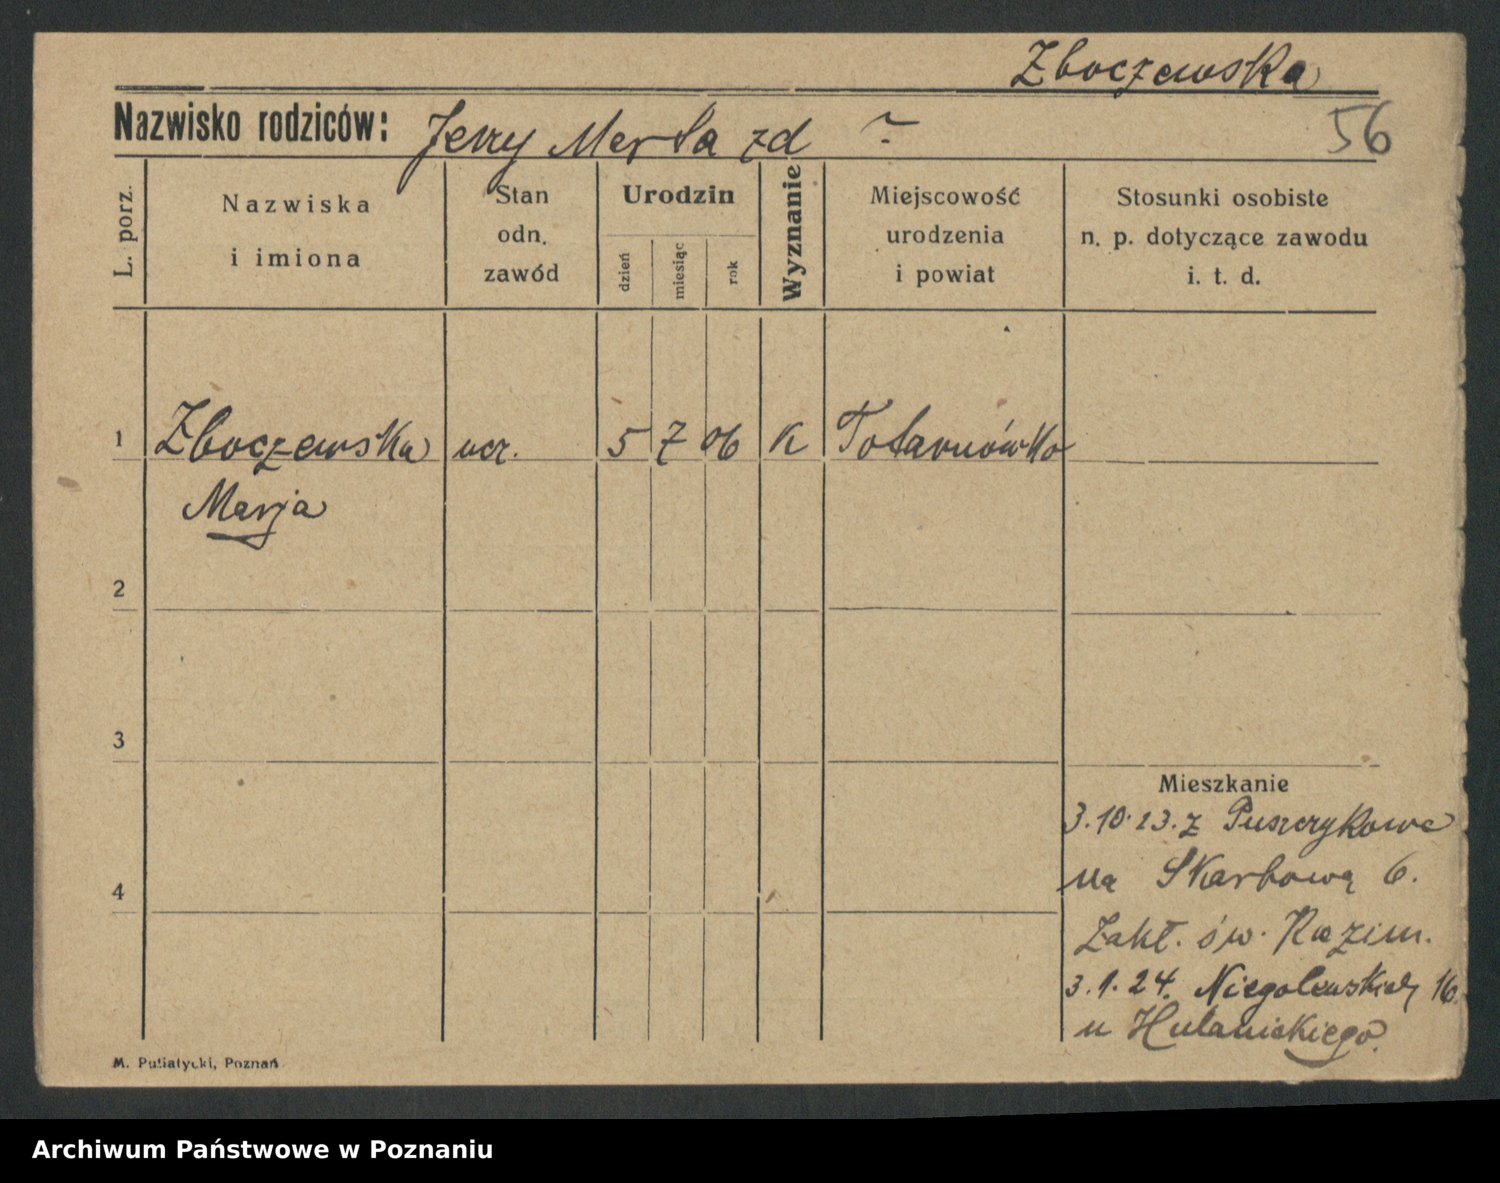 Zboczewska
Nazwisko rodziców: Jerzy Marta zd ?
56
L. porz.
Nazwiska
i imiona
Stan
odn.
zawód
Urodzin
dzień
miesiąc
rok
Wyznanie
Miejscowość
urodzenia
i powiat
Stosunki osobiste
n. p. dotyczące zawodu
i. t. d.
1 Zboczewska ucz. 5 7 06 K
Marja
2
3
4
Mieszkanie
3.10.23. z Puszczykowa
na Skarbową 6.
Zakł. św. Kazim.
3.1.24. Niegolewskich 16.
u Hulanickiego.
M. Putiatycki, Poznań
Archiwum Państwowe w Poznaniu